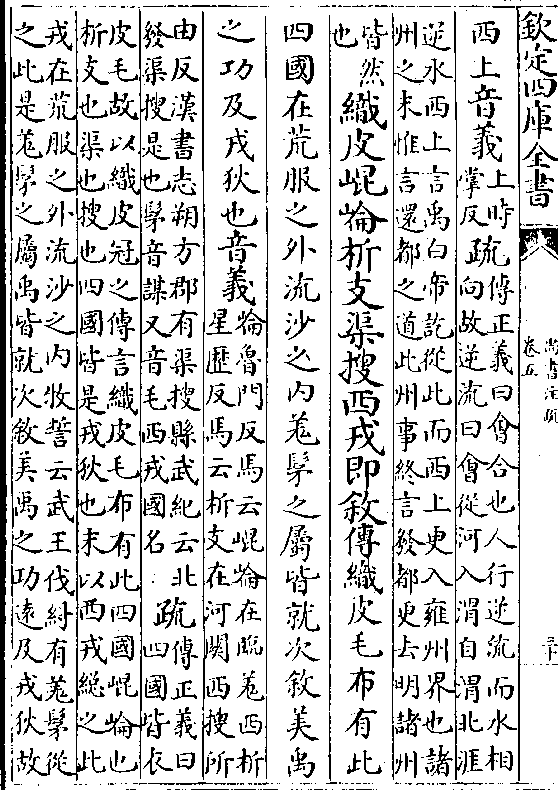 欽定四庫全書
尚書注疏
卷五
三十
西上音義上時掌反疏傳正義曰會合也人行逆流而水相
向故逆流曰會從河入渭自渭北涯
逆水西上言禹白帝訖從此而西上更入雍州界也諸
州之末惟言還都之道此州事終言發都更去明諸州
皆然也織皮崐崘析支渠搜西戎即敘傳織皮毛布有此
四國在荒服之外流沙之内羌髳之屬皆就次敘美禹
之功及戎狄也音義崘魯門反馬云崐崘在臨羌西析
星歴反馬云析支在河関西搜所
由反漢書志朔方郡有渠搜縣武紀云北
發渠搜是也髳音謀又音毛西戎國名疏傳正義曰
四國皆衣
皮毛故以織皮冠之傳言織皮毛布有此四國崐崘也
析支也渠也搜也四國皆是戎狄也末以西戎總之此
戎在荒服之外流沙之内牧誓云武王伐紂有羌髳從
之此是羌髳之屬禹皆就次敘美禹之功逺及戎狄故